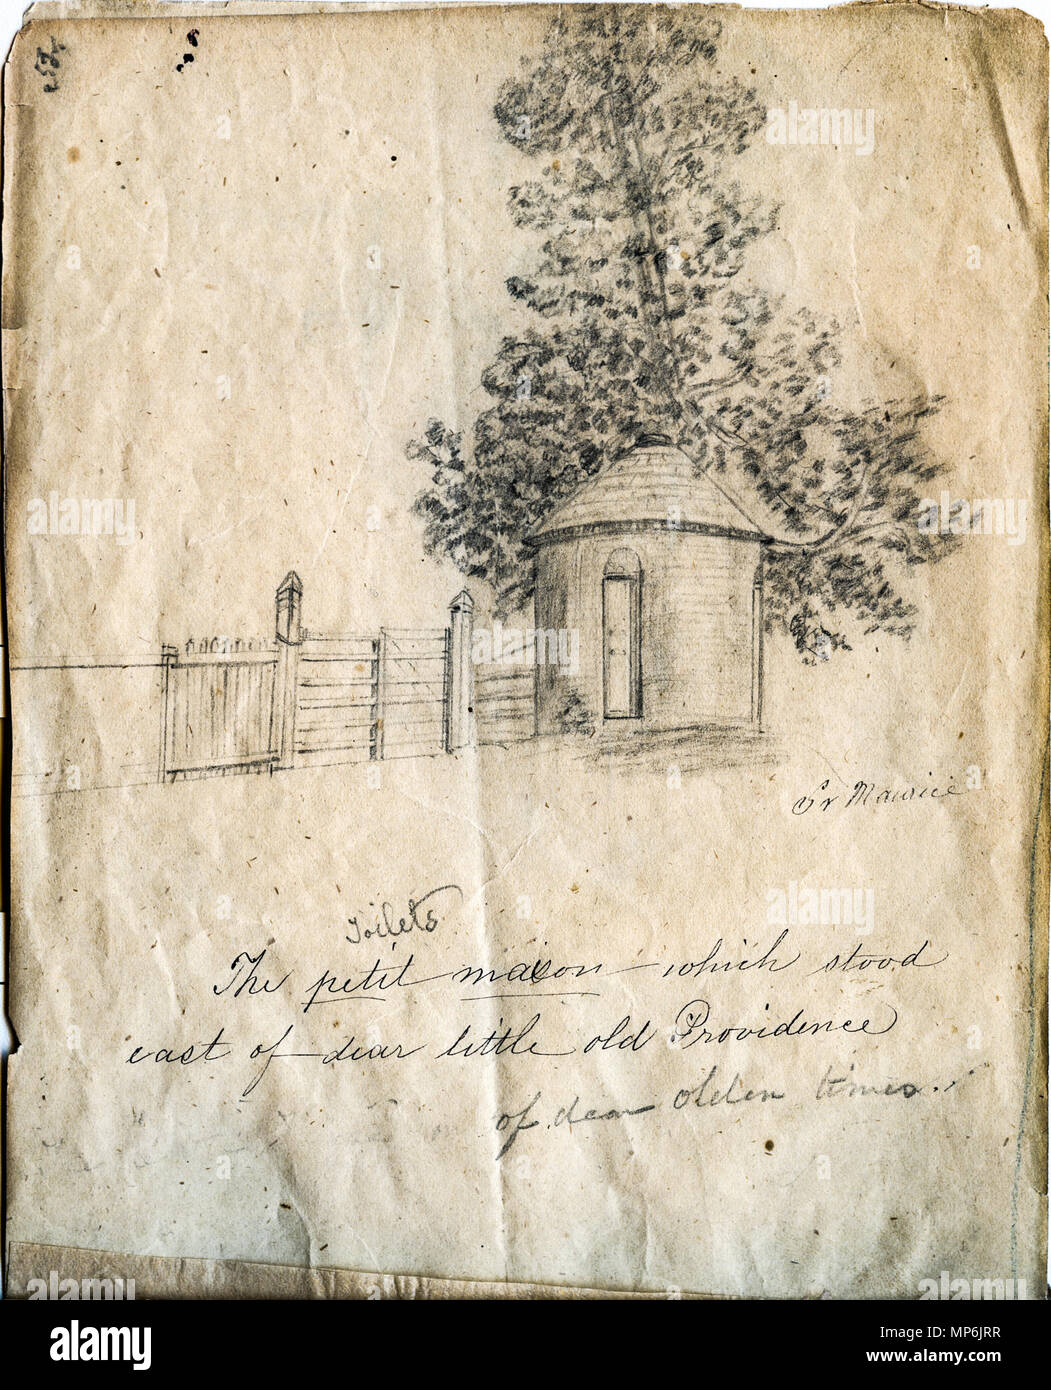 Sr Maurice
Toilets
The petit maison which stood
east of dear little old Providence
of dear olden times.
alamy
Image ID: MP6JRR
www.alamy.com